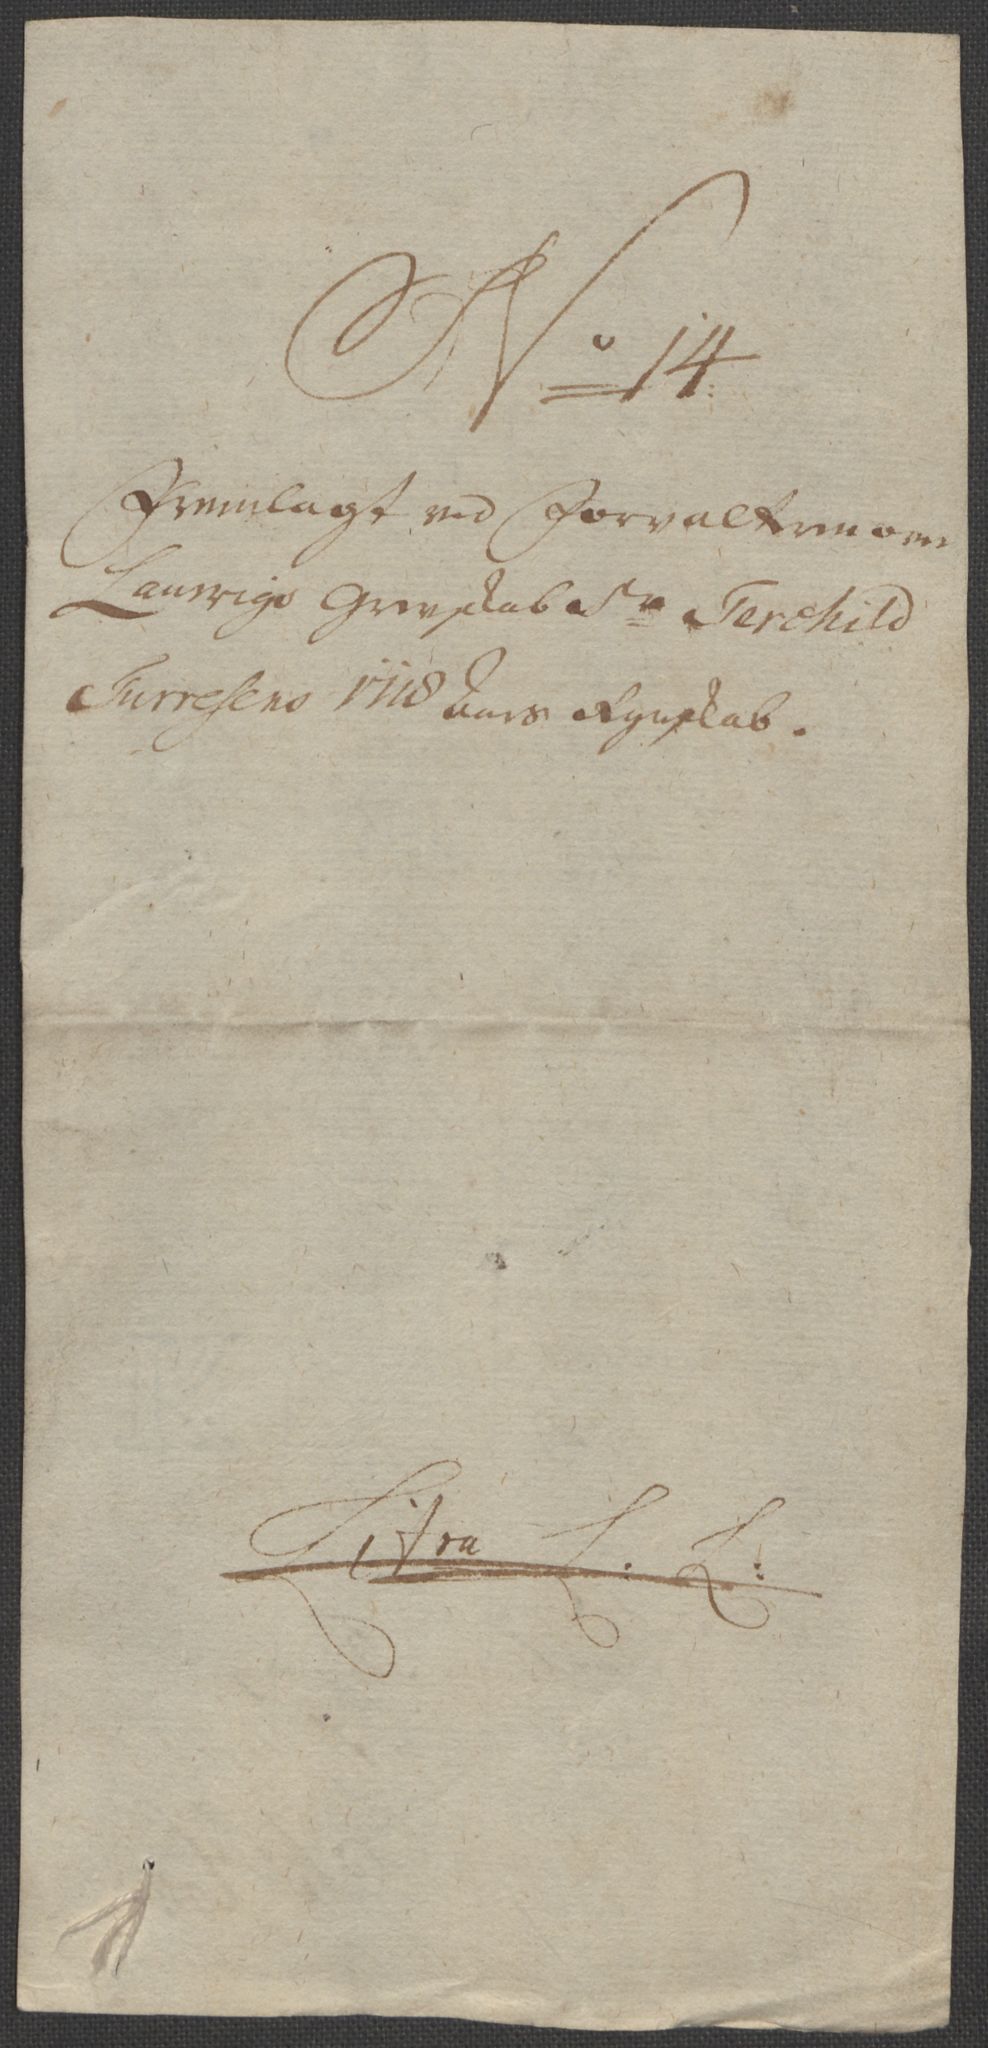 No 14.
Fremlagt ved Forvalteren over
Laurvigs Grevskab Sr Terchild
Turresens 1718 Aars Regnskab.
Litra L: L: